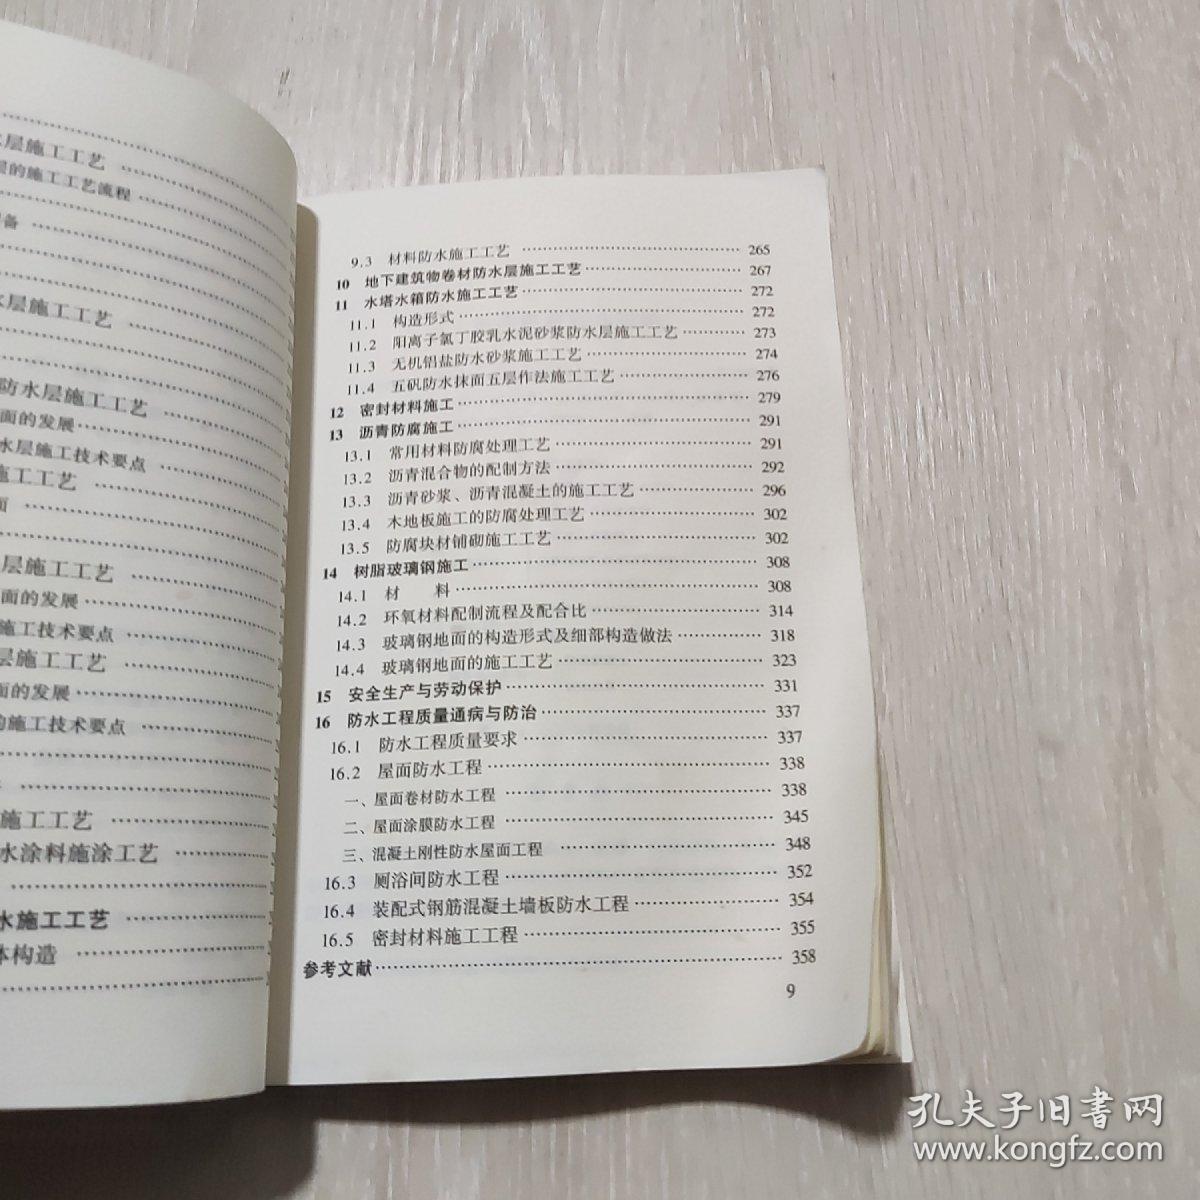 水层施工工艺
层的施工工艺流程
备
水层施工工艺
防水层施工工艺
面的发展
水层施工技术要点
施工工艺
面
层施工工艺
面的发展
施工技术要点
层施工工艺
面的发展
的施工技术要点
施工工艺
水涂料施涂工艺
水施工工艺
体构造
9.3 材料防水施工工艺 265
10 地下建筑物卷材防水层施工工艺 267
11 水塔水箱防水施工工艺 272
11.1 构造形式 272
11.2 阳离子氯丁胶乳水泥砂浆防水层施工工艺 273
11.3 无机铝盐防水砂浆施工工艺 274
11.4 五矾防水抹面五层作法施工工艺 276
12 密封材料施工 279
13 沥青防腐施工 291
13.1 常用材料防腐处理工艺 291
13.2 沥青混合物的配制方法 292
13.3 沥青砂浆、沥青混凝土的施工工艺 296
13.4 木地板施工的防腐处理工艺 302
13.5 防腐块材铺砌施工工艺 302
14 树脂玻璃钢施工 308
14.1 材 料 308
14.2 环氧材料配制流程及配合比 314
14.3 玻璃钢地面的构造形式及细部构造做法 318
14.4 玻璃钢地面的施工工艺 323
15 安全生产与劳动保护 331
16 防水工程质量通病与防治 337
16.1 防水工程质量要求 337
16.2 屋面防水工程 338
一、屋面卷材防水工程 338
二、屋面涂膜防水工程 345
三、混凝土刚性防水屋面工程 348
16.3 厕浴间防水工程 352
16.4 装配式钢筋混凝土墙板防水工程 354
16.5 密封材料施工工程 355
参考文献 358
9
孔夫子旧书网
www.kongfz.com